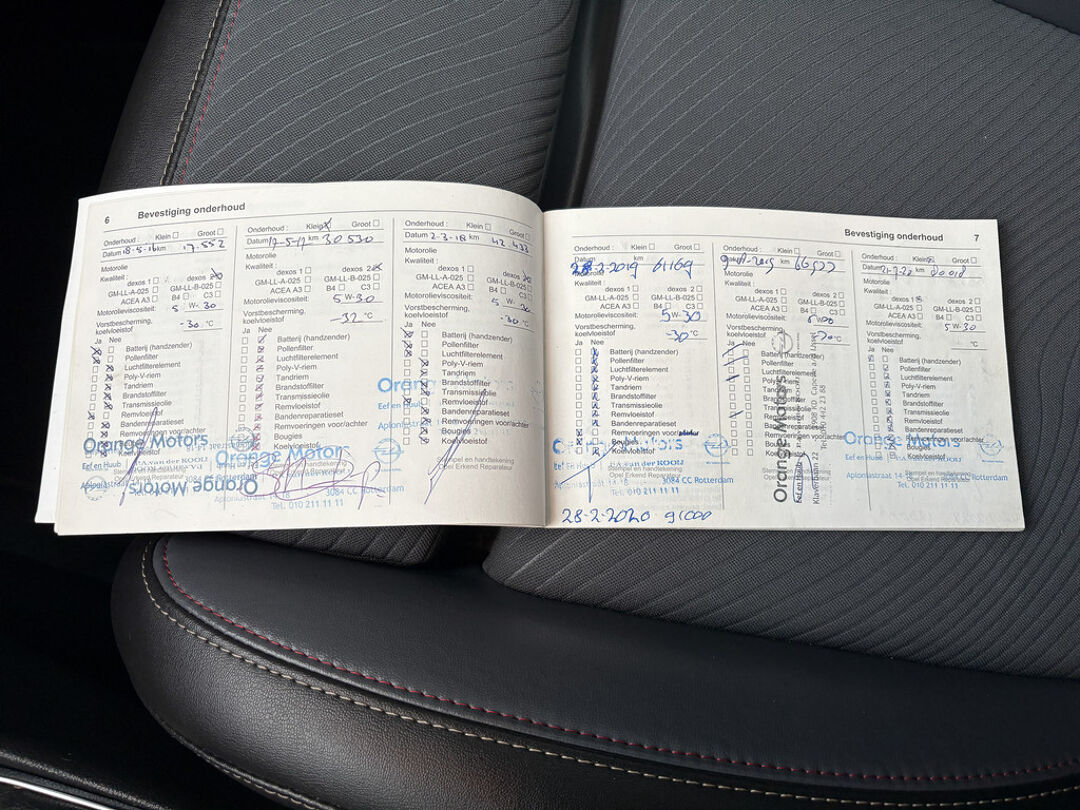 6 Bevestiging onderhoud
Onderhoud : Klein Groot
Datum 18-5-16 km 17.552
Motorolie
Kwaliteit :
dexos 1 dexos 2
GM-LL-A-025 GM-LL-B-025
ACEA A3 B4 C3
Motorolieviscositeit: 5 W-30
Vorstbescherming,
koelvloeistof -30 °C
Ja Nee
Batterij (handzender)
Pollenfilter
Luchtfilterelement
Poly-V-riem
Tandriem
Brandstoffilter
Transmissieolie
Remvloeistof
Bandenreparatieset
Remvoeringen voor/achter
Bougies
Koelvloeistof
Orange Motors
Eef en Huub
Orange Motors
Onderhoud : Klein Groot
Datum 17-5-17 km 30530
Motorolie
Kwaliteit :
dexos 1 dexos 2
GM-LL-A-025 GM-LL-B-025
ACEA A3 B4 C3
Motorolieviscositeit: 5 W-30
Vorstbescherming,
koelvloeistof -32 °C
Ja Nee
Batterij (handzender)
Pollenfilter
Luchtfilterelement
Poly-V-riem
Tandriem
Brandstoffilter
Transmissieolie
Remvloeistof
Bandenreparatieset
Remvoeringen voor/achter
Bougies
Koelvloeistof
Orange Motors
3084 CC Rotterdam
Tel. 010 211 11 11
Onderhoud : Klein Groot
Datum 2-3-18 km 42 433
Motorolie
Kwaliteit :
dexos 1 dexos
GM-LL-A-025 GM-LL-B-025
ACEA A3 B4 C3
Motorolieviscositeit: 5 W-30
Vorstbescherming,
koelvloeistof -30 °C
Ja Nee
Batterij (handzender)
Pollenfilter
Luchtfilterelement
Poly-V-riem
Tandriem
Brandstoffilter
Transmissieolie
Remvloeistof
Bandenreparatieset
Remvoeringen voor/achter
Bougies
Koelvloeistof
Stempel en handtekening
Opel Erkend Reparateur
Bevestiging onderhoud 7
Onderhoud : Klein Groot
Datum 28-2-2019 km 61169
Motorolie
Kwaliteit :
dexos 1 dexos 2
GM-LL-A-025 GM-LL-B-025
ACEA A3 B4 C3
Motorolieviscositeit: 5 W-30
Vorstbescherming,
koelvloeistof -30 °C
Ja Nee
Batterij (handzender)
Pollenfilter
Luchtfilterelement
Poly-V-riem
Tandriem
Brandstoffilter
Transmissieolie
Remvloeistof
Bandenreparatieset
Remvoeringen voor/achter
Bougies
Koelvloeistof
Stempel en handtekening
Opel Erkend Reparateur
3084 CC Rotterdam
Tel. 010 211 11 11
28-2-2020 91000
Onderhoud : Klein Groot
Datum km
Motorolie
Kwaliteit :
dexos 1 dexos 2
GM-LL-A-025 GM-LL-B-025
ACEA A3 B4 C3
Motorolieviscositeit:
Vorstbescherming,
koelvloeistof °C
Ja Nee
Batterij (handzender)
Pollenfilter
Luchtfilterelement
Poly-V-riem
Tandriem
Orange Motors
Onderhoud : Klein Groot
Datum km
Motorolie
Kwaliteit :
dexos 1 dexos 2
GM-LL-A-025 GM-LL-B-025
ACEA A3 B4 C3
Motorolieviscositeit: 5 W-30
Vorstbescherming,
koelvloeistof °C
Ja Nee
Batterij (handzender)
Pollenfilter
Luchtfilterelement
Poly-V-riem
Tandriem
Brandstoffilter
Transmissieolie
Remvloeistof
Bandenreparatieset
Remvoeringen voor/achter
Orange Motors
Koelvloeistof
Stempel en handtekening
Opel Erkend Reparateur
Tel. 010 211 11 11